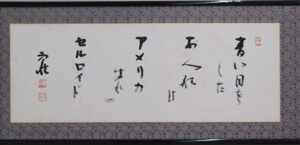 青い目を
した
お人形
は
アメリカ
生れの
セルロイド
雨情